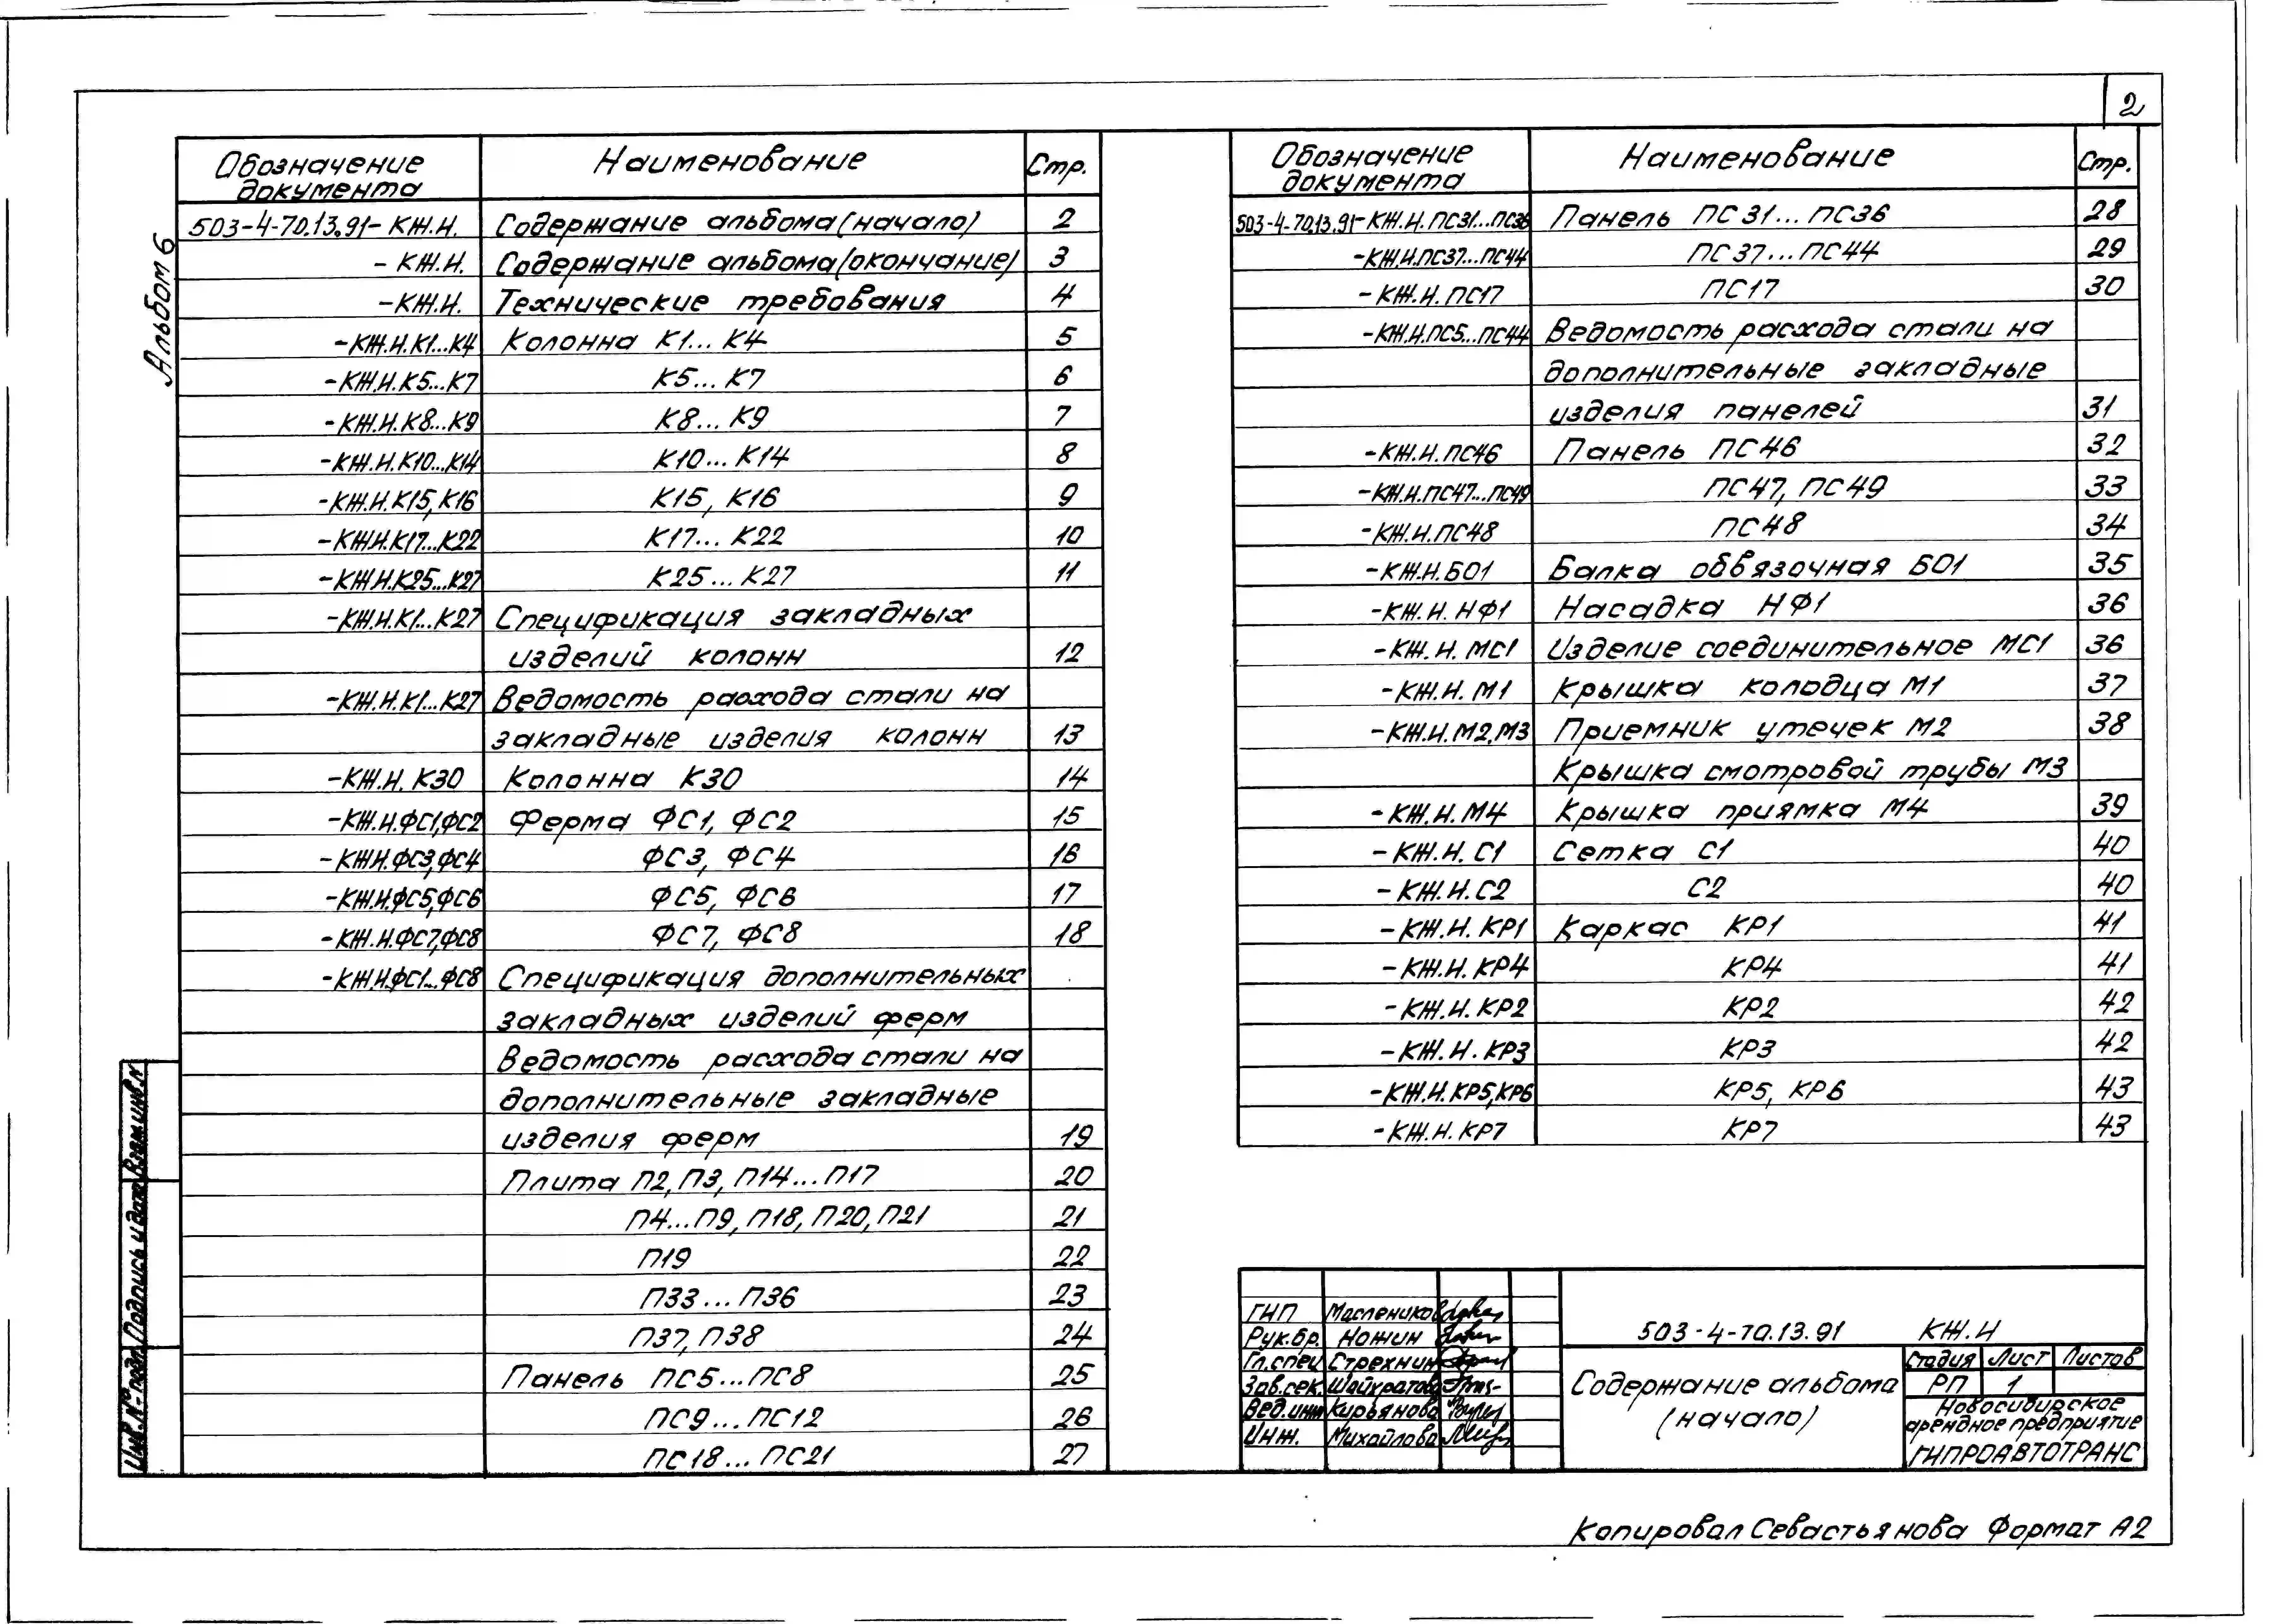 2
Альбом 6
Обозначение документа Наименование Стр.
503-4-70.13.91-КЖ.И. Содержание альбома (начало) 2
-КЖ.И. Содержание альбома (окончание) 3
-КЖ.И. Технические требования 4
-КЖ.И.К1...К4 Колонна К1...К4 5
-КЖ.И.К5...К7 К5...К7 6
-КЖ.И.К8...К9 К8...К9 7
-КЖ.И.К10...К14 К10...К14 8
-КЖ.И.К15,К16 К15, К16 9
-КЖ.И.К17...К22 К17...К22 10
-КЖ.И.К25...К27 К25...К27 11
-КЖ.И.К1...К27 Спецификация закладных
изделий колонн 12
-КЖ.И.К1...К27 Ведомость расхода стали на
закладные изделия колонн 13
-КЖ.И. К30 Колонна К30 14
-КЖ.И.ФС1,ФС2 Ферма ФС1, ФС2 15
-КЖ.И.ФС3,ФС4 ФС3, ФС4 16
-КЖ.И.ФС5,ФС6 ФС5, ФС6 17
-КЖ.И.ФС7,ФС8 ФС7, ФС8 18
-КЖ.И.ФС1...ФС8 Спецификация дополнительных
закладных изделий ферм
Ведомость расхода стали на
дополнительные закладные
изделия ферм 19
Плита П2, П3, П14...П17 20
П4...П9, П18, П20, П21 21
П19 22
П33...П36 23
П37, П38 24
Панель ПС5...ПС8 25
ПС9...ПС12 26
ПС18...ПС21 27
Обозначение документа Наименование Стр.
503-4-70.13.91-КЖ.И.ПС31...ПС36 Панель ПС31...ПС36 28
-КЖ.И.ПС37...ПС44 ПС37...ПС44 29
-КЖ.И.ПС17 ПС17 30
-КЖ.И.ПС5...ПС44 Ведомость расхода стали на
дополнительные закладные
изделия панелей 31
-КЖ.И.ПС46 Панель ПС46 32
-КЖ.И.ПС47...ПС49 ПС47, ПС49 33
-КЖ.И.ПС48 ПС48 34
-КЖ.И.БО1 Балка обвязочная БО1 35
-КЖ.И.НФ1 Насадка НФ1 36
-КЖ.И. МС1 Изделие соединительное МС1 36
-КЖ.И. М1 Крышка колодца М1 37
-КЖ.И.М2,М3 Приемник утечек М2 38
Крышка смотровой трубы М3
-КЖ.И.М4 Крышка приямка М4 39
-КЖ.И. С1 Сетка С1 40
-КЖ.И.С2 С2 40
-КЖ.И. КР1 Каркас КР1 41
-КЖ.И. КР4 КР4 41
-КЖ.И. КР2 КР2 42
-КЖ.И. КР3 КР3 42
-КЖ.И.КР5,КР6 КР5, КР6 43
-КЖ.И.КР7 КР7 43
Взам.инв.N
Подпись и дата
Инв.№ подл.
ГИП Маслеников
Рук.бр. Ножин
Гл.спец Стрехнин
Зав.сек. Шайхратова
Вед.инж Кирьянова
Инж. Михайлова
503-4-70.13.91 КЖ.И
Содержание альбома
(начало)
Стадия Лист Листов
РП 1
Новосибирское
арендное предприятие
ГИПРОАВТОТРАНС
Копировал Севастьянова Формат А2